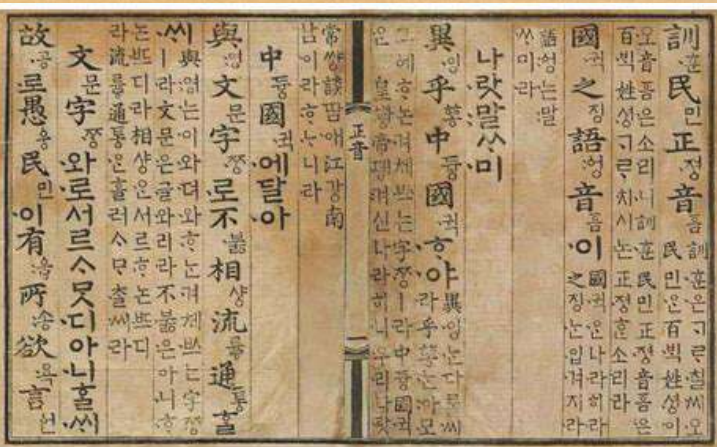 訓훈民민正정音ᅙᅳᆷ
訓훈은ᄀᆞᄅᆞ칠씨오
民민ᄋᆞᆫ百ᄇᆡᆨ姓셩이
오音ᅙᅳᆷ은소리니訓훈民민正정音ᅙᅳᆷ은
百ᄇᆡᆨ姓셩ᄀᆞᄅᆞ치시논正정ᄒᆞᆫ소리라
國귁之징語ᅌᅥᆼ音ᅙᅳᆷ이
國귁ᄋᆞᆫ나라히라
之징ᄂᆞᆫ입겨지라
語ᅌᅥᆼ는말
ᄊᆞ미라
나랏말ᄊᆞ미
異잉乎ᅘᅩᆼ中듀ᇰ國귁ᄒᆞ야
異잉ᄂᆞᆫ다ᄅᆞᆯ씨
라乎ᅘᅩᆼᄂᆞᆫ아모
그ᅌᅦᄒᆞ논겨체ᄡᅳ는字ᄍᆞᆼㅣ라中듀ᇰ國귁
ᄋᆞᆫ皇ᅘᅪᇰ帝뎽겨신나라히니우리나랏
正音
一
常쌰ᇰ談땀애江가ᇰ南
남이라ᄒᆞᄂᆞ니라
中듀ᇰ國귁에달아
與영文문字ᄍᆞᆼ로不부ᇙ相샤ᇰ流류ᇢ通토ᇰᄒᆞᆯ
ᄊᆡ
與영는이와뎌와ᄒᆞ논겨체ᄡᅳ는字ᄍᆞᆼ
ㅣ라文문은글와리라不부ᇙ은아니ᄒᆞ
논ᄠᅳ디라相샤ᇰᄋᆞᆫ서르ᄒᆞ논ᄠᅳ디
라流류ᇢ通토ᇰᄋᆞᆫ흘러ᄉᆞᄆᆞᄎᆞᆯ씨라
文문字ᄍᆞᆼ와로서르ᄉᆞᄆᆞᆺ디아니ᄒᆞᆯᄊᆡ
故공로愚ᅌᅮᆼ民민이有ᅌᅮᇢ所송欲욕言ᅌᅥᆫ